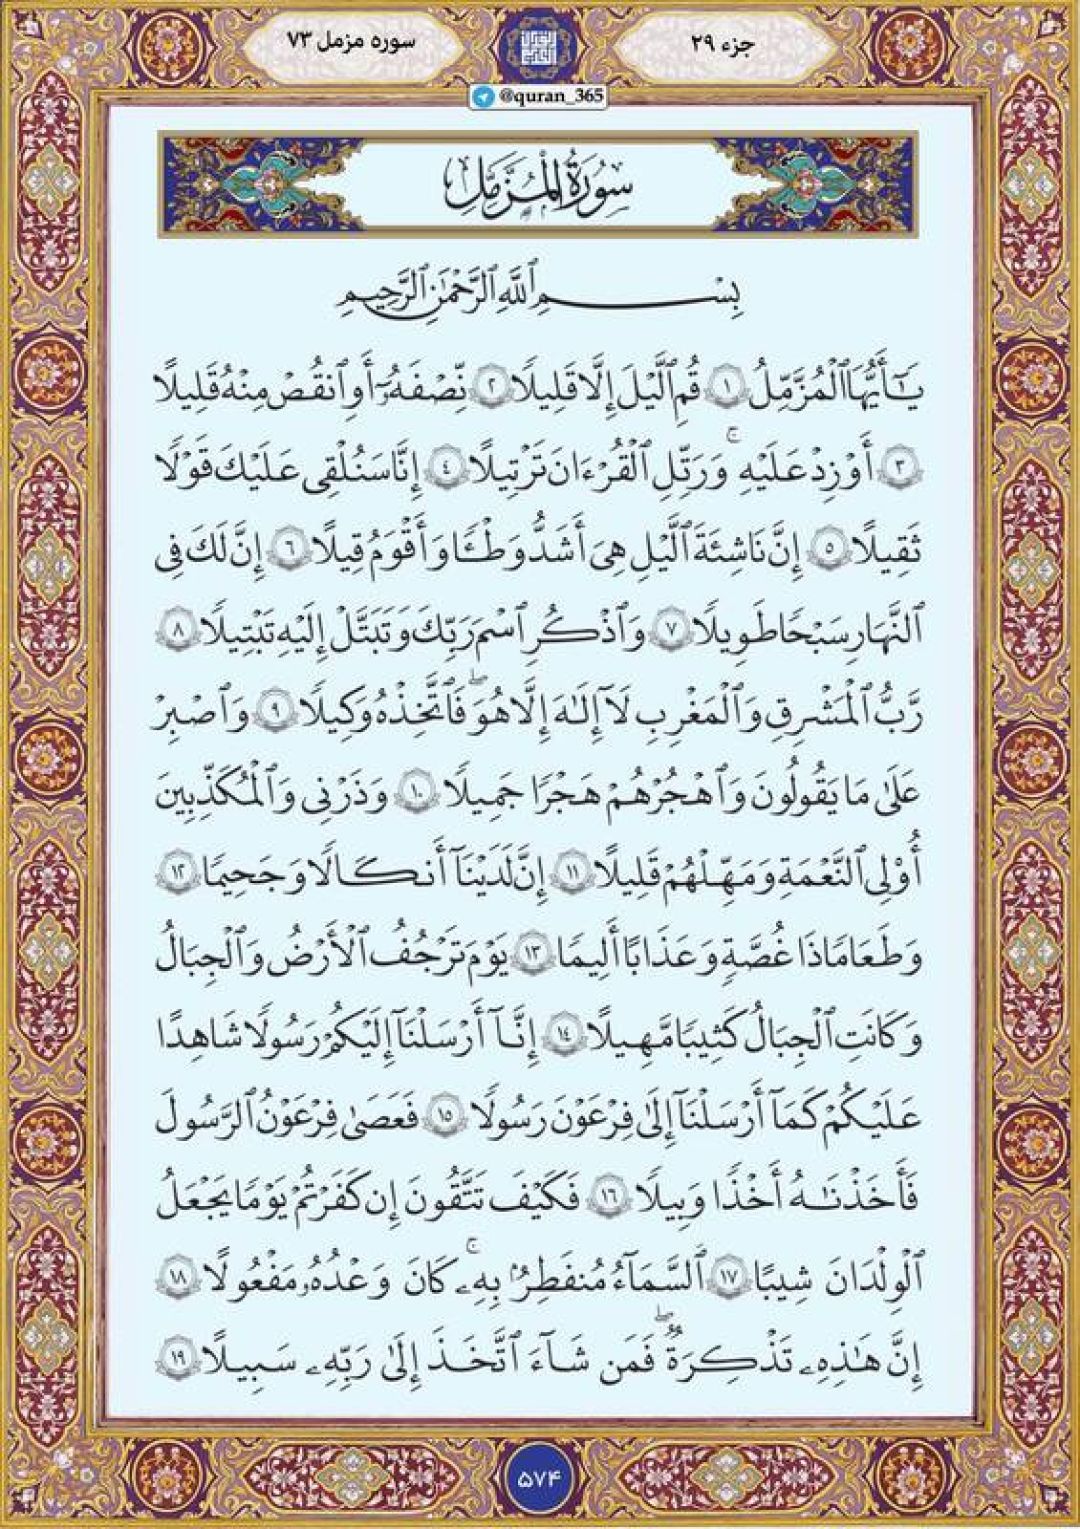 جزء ۲۹
سوره مزمل ۷۳
@quran_365
سُورَةُ الْمُزَّمِّلِ
بِسْمِ ٱللَّهِ ٱلرَّحْمَٰنِ ٱلرَّحِيمِ
يَٰٓأَيُّهَا ٱلْمُزَّمِّلُ ١ قُمِ ٱلَّيْلَ إِلَّا قَلِيلًا ٢ نِّصْفَهُۥٓ أَوِ ٱنقُصْ مِنْهُ قَلِيلًا
٣ أَوْ زِدْ عَلَيْهِ ۚ وَرَتِّلِ ٱلْقُرْءَانَ تَرْتِيلًا ٤ إِنَّا سَنُلْقِى عَلَيْكَ قَوْلًا
ثَقِيلًا ٥ إِنَّ نَاشِئَةَ ٱلَّيْلِ هِىَ أَشَدُّ وَطْـًٔا وَأَقْوَمُ قِيلًا ٦ إِنَّ لَكَ فِى
ٱلنَّهَارِ سَبْحًا طَوِيلًا ٧ وَٱذْكُرِ ٱسْمَ رَبِّكَ وَتَبَتَّلْ إِلَيْهِ تَبْتِيلًا ٨
رَّبُّ ٱلْمَشْرِقِ وَٱلْمَغْرِبِ لَآ إِلَٰهَ إِلَّا هُوَ ۖ فَٱتَّخِذْهُ وَكِيلًا ٩ وَٱصْبِرْ
عَلَىٰ مَا يَقُولُونَ وَٱهْجُرْهُمْ هَجْرًا جَمِيلًا ١٠ وَذَرْنِى وَٱلْمُكَذِّبِينَ
أُو۟لِى ٱلنَّعْمَةِ وَمَهِّلْهُمْ قَلِيلًا ١١ إِنَّ لَدَيْنَآ أَنكَالًا وَجَحِيمًا ١٢
وَطَعَامًا ذَا غُصَّةٍ وَعَذَابًا أَلِيمًا ١٣ يَوْمَ تَرْجُفُ ٱلْأَرْضُ وَٱلْجِبَالُ
وَكَانَتِ ٱلْجِبَالُ كَثِيبًا مَّهِيلًا ١٤ إِنَّآ أَرْسَلْنَآ إِلَيْكُمْ رَسُولًا شَاهِدًا
عَلَيْكُمْ كَمَآ أَرْسَلْنَآ إِلَىٰ فِرْعَوْنَ رَسُولًا ١٥ فَعَصَىٰ فِرْعَوْنُ ٱلرَّسُولَ
فَأَخَذْنَٰهُ أَخْذًا وَبِيلًا ١٦ فَكَيْفَ تَتَّقُونَ إِن كَفَرْتُمْ يَوْمًا يَجْعَلُ
ٱلْوِلْدَٰنَ شِيبًا ١٧ ٱلسَّمَآءُ مُنفَطِرٌۢ بِهِۦ ۚ كَانَ وَعْدُهُۥ مَفْعُولًا ١٨
إِنَّ هَٰذِهِۦ تَذْكِرَةٌ ۖ فَمَن شَآءَ ٱتَّخَذَ إِلَىٰ رَبِّهِۦ سَبِيلًا ١٩
۵۷۴